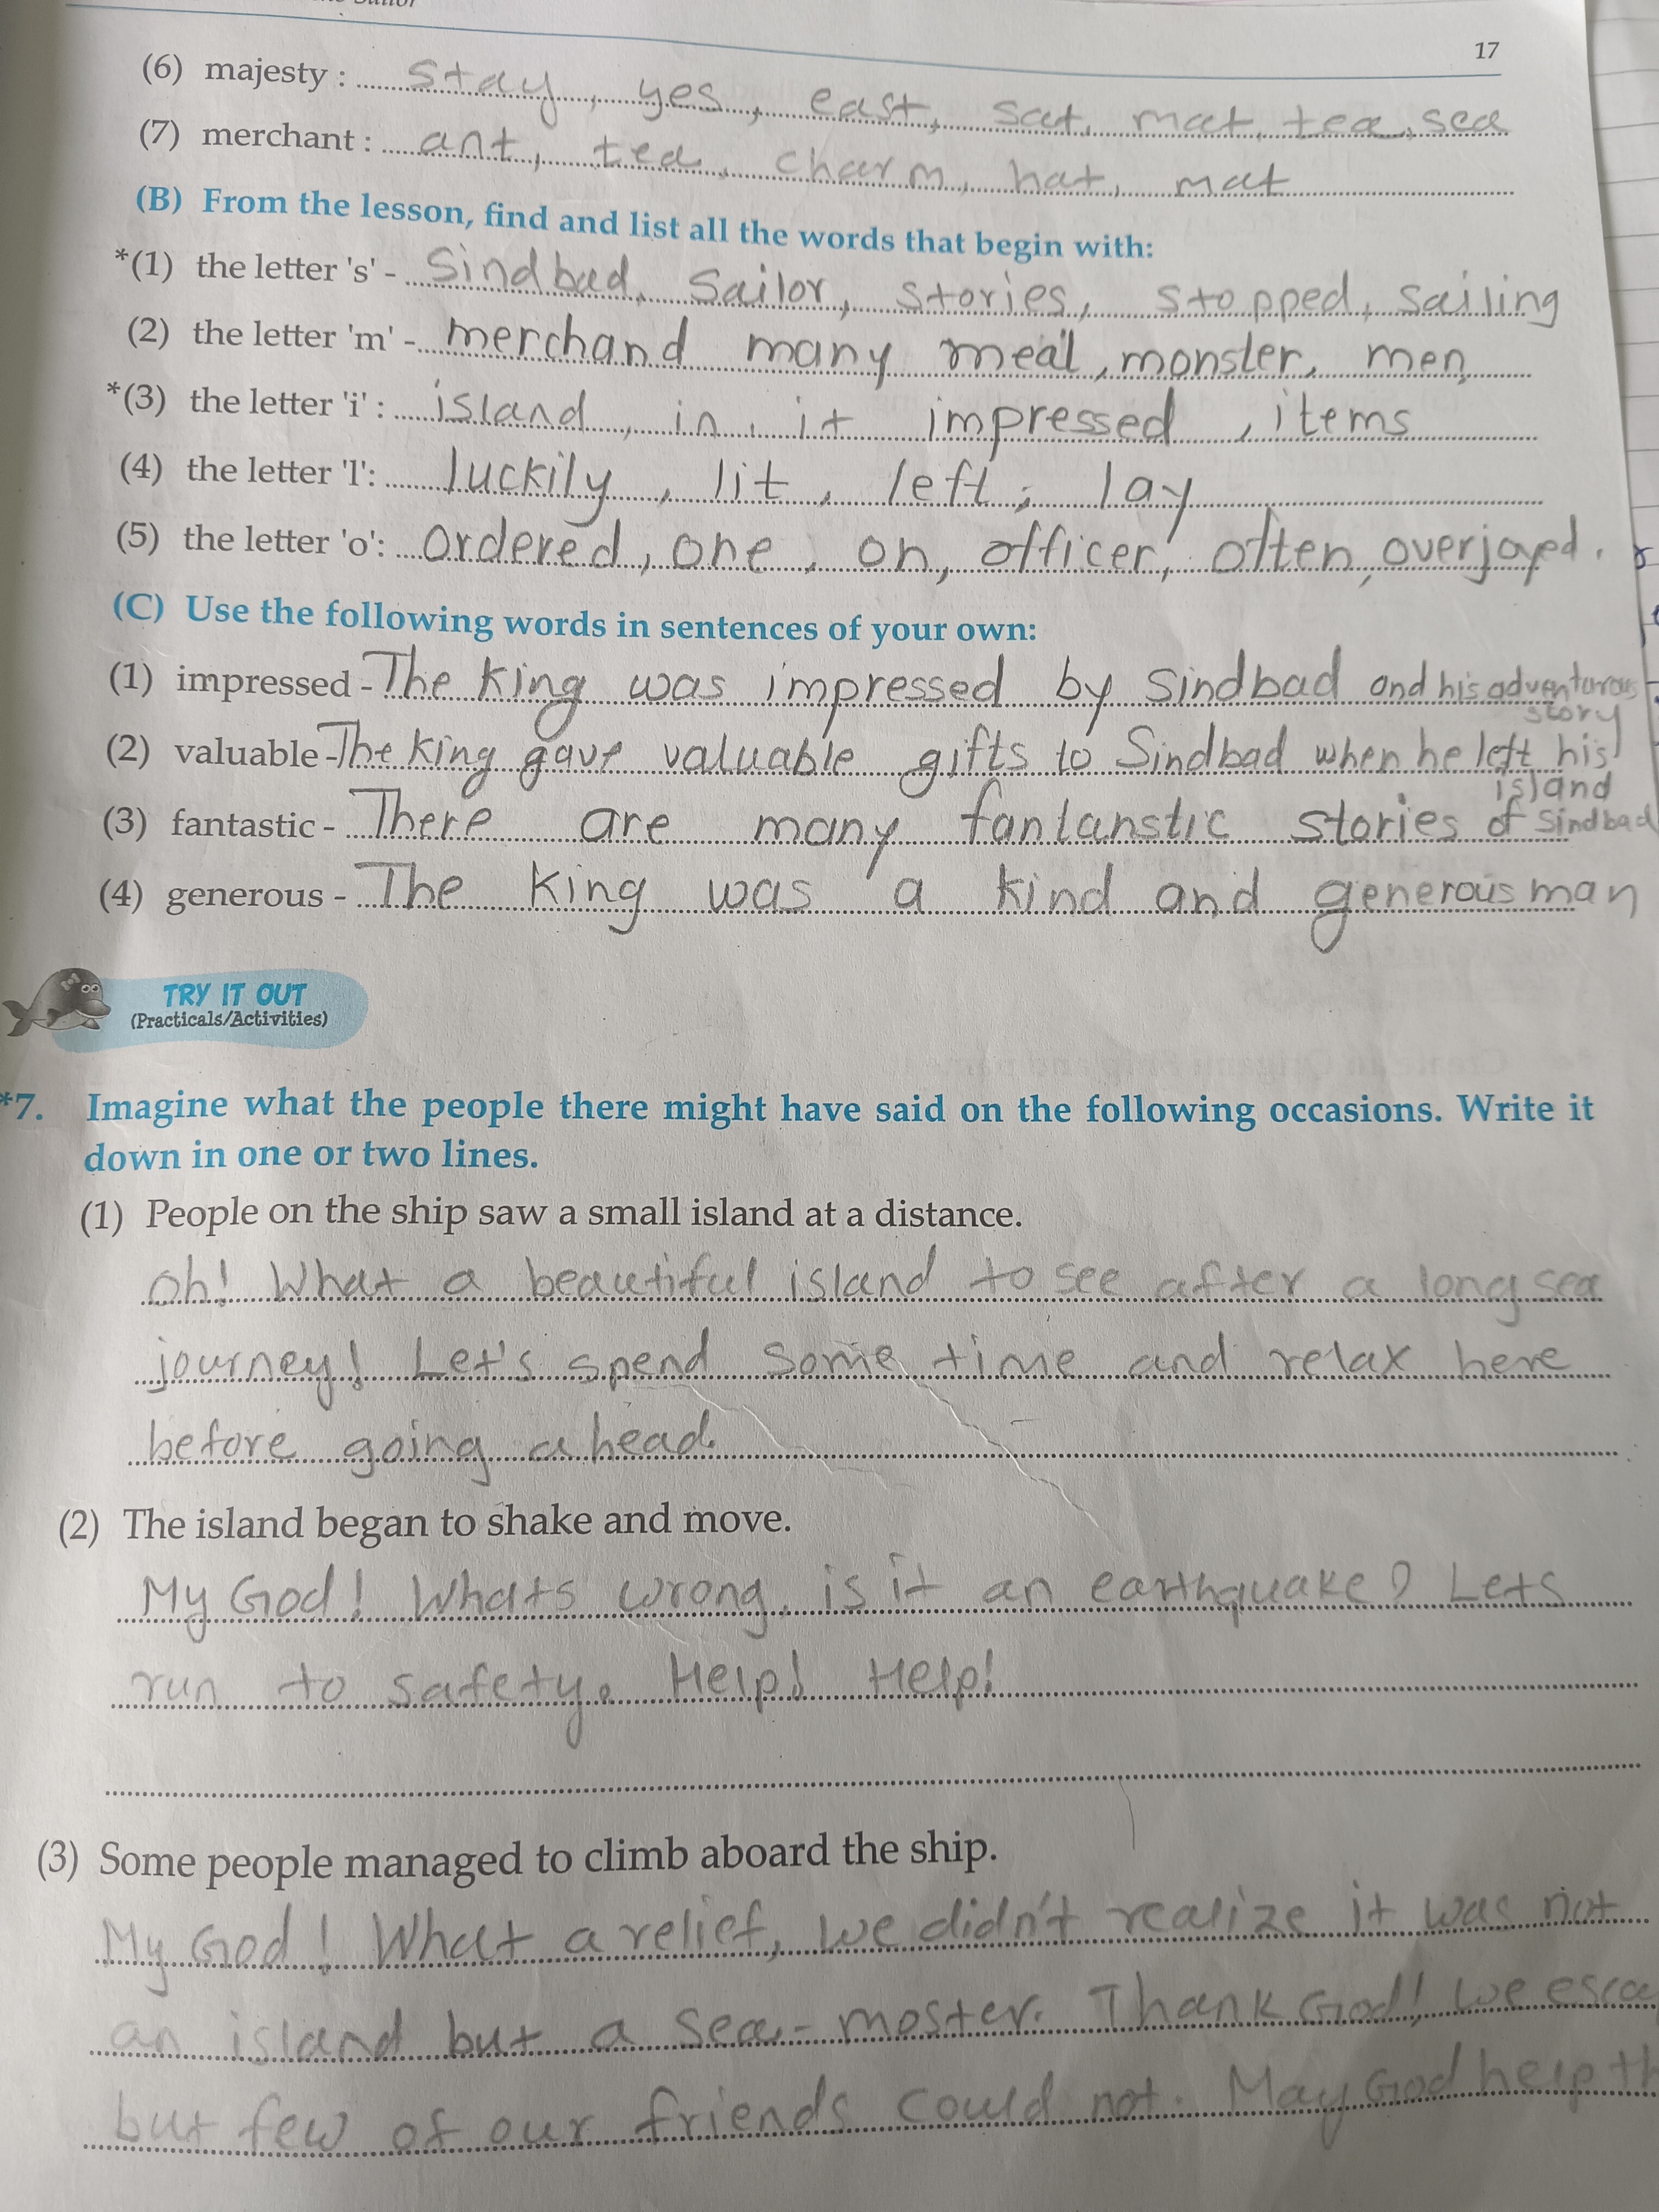 17
(6) majesty : stay, yes, east, sat, mat, tea, sea
(7) merchant : ant, tea, charm, hat, mat
(B) From the lesson, find and list all the words that begin with:
*(1) the letter 's' - Sindbad, Sailor, stories, stopped, sailing
(2) the letter 'm' - merchand many meal, monster, men
*(3) the letter 'i' : island, in, it impressed, items
(4) the letter 'l': luckily, lit, left, lay
(5) the letter 'o': ordered, one, on, officer, often, overjoyed.
(C) Use the following words in sentences of your own:
(1) impressed - The King was impressed by Sindbad and his adventurous
story
(2) valuable - The King gave valuable gifts to Sindbad when he left his
island
(3) fantastic - There are many fantanstic stories of Sindbad
(4) generous - The King was a kind and generous man
TRY IT OUT
(Practicals/Activities)
*7. Imagine what the people there might have said on the following occasions. Write it
down in one or two lines.
(1) People on the ship saw a small island at a distance.
Oh! What a beautiful island to see after a long sea
journey! Let's spend some time and relax here
before going ahead.
(2) The island began to shake and move.
My God! Whats wrong, is it an earthquake? Lets
run to safety. Help! Help!
(3) Some people managed to climb aboard the ship.
My God! What a relief, we didn't realize it was not
an island but a sea-moster. Thank God! we esca
but few of our friends could not. May God help th